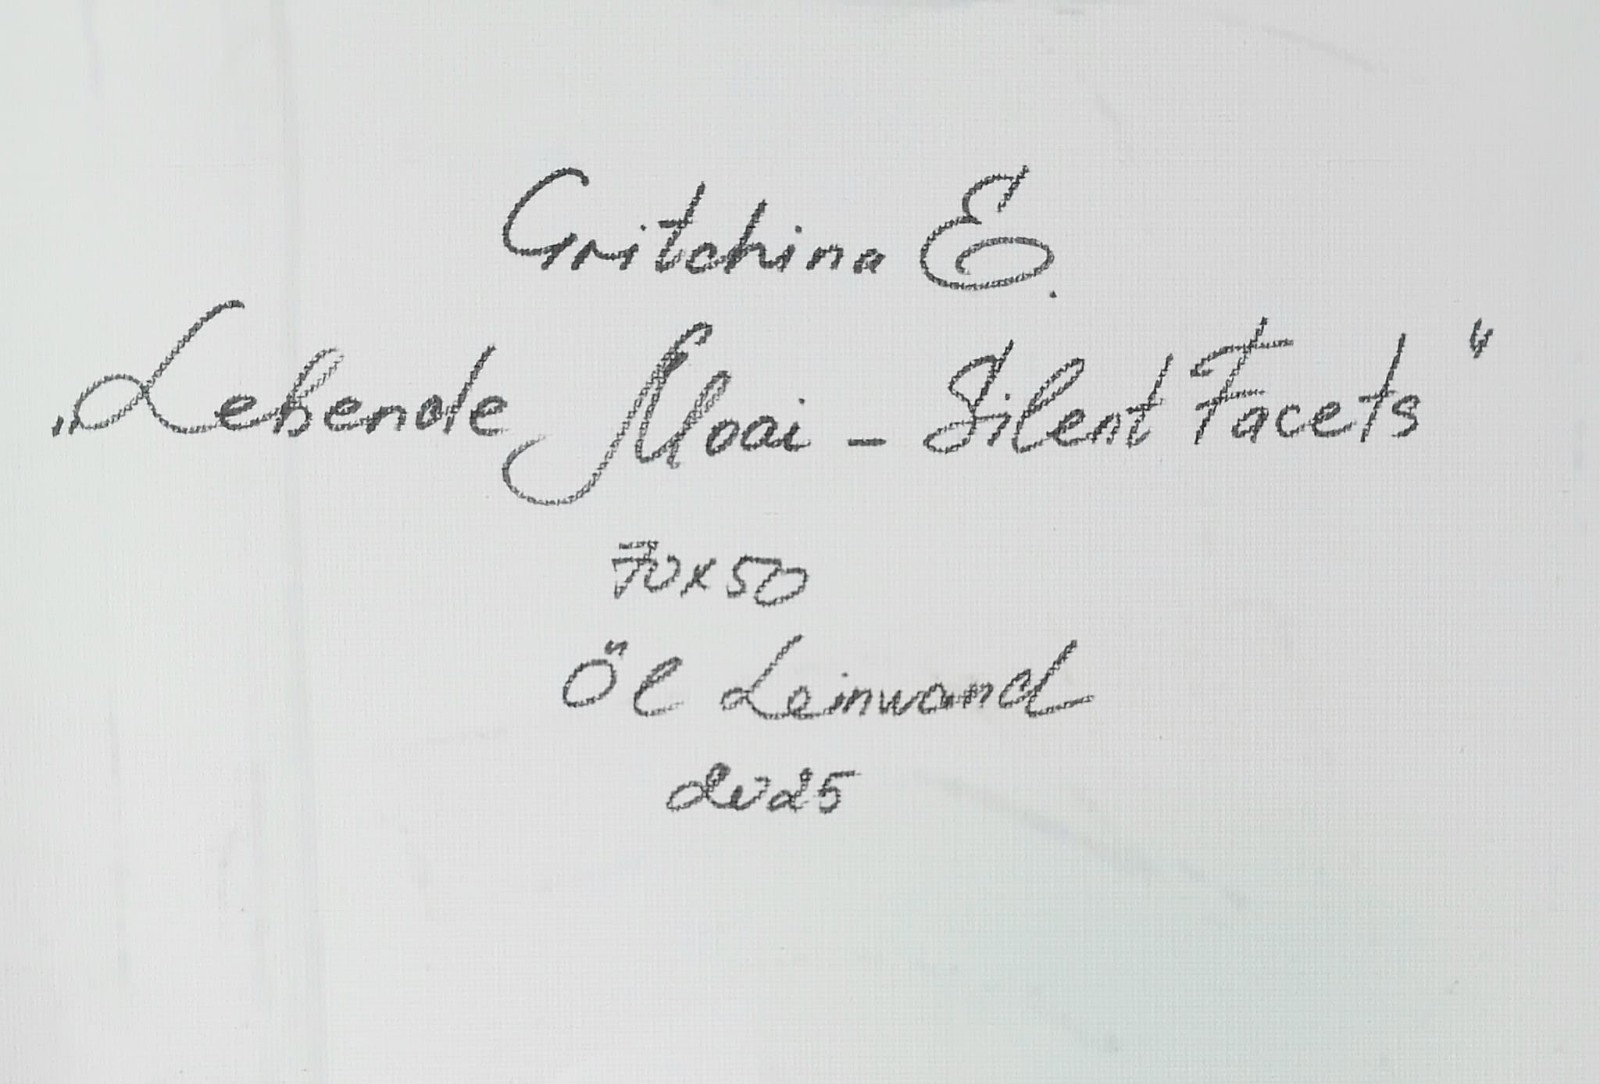 Gritchina E.
„Lebende Moai - Silent Facets“
70x50
Öl Leinwand
2025